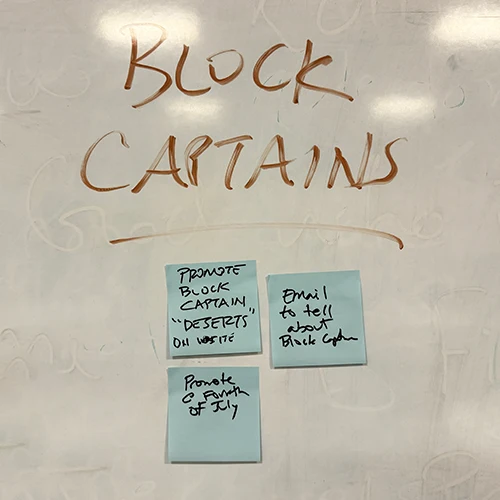 BLOCK
CAPTAINS
PROMOTE
BLOCK
CAPTAIN
"DESERTS"
ON WSITE
Email
to tell
about
Block Captain
Promote
@ Fourth
of July